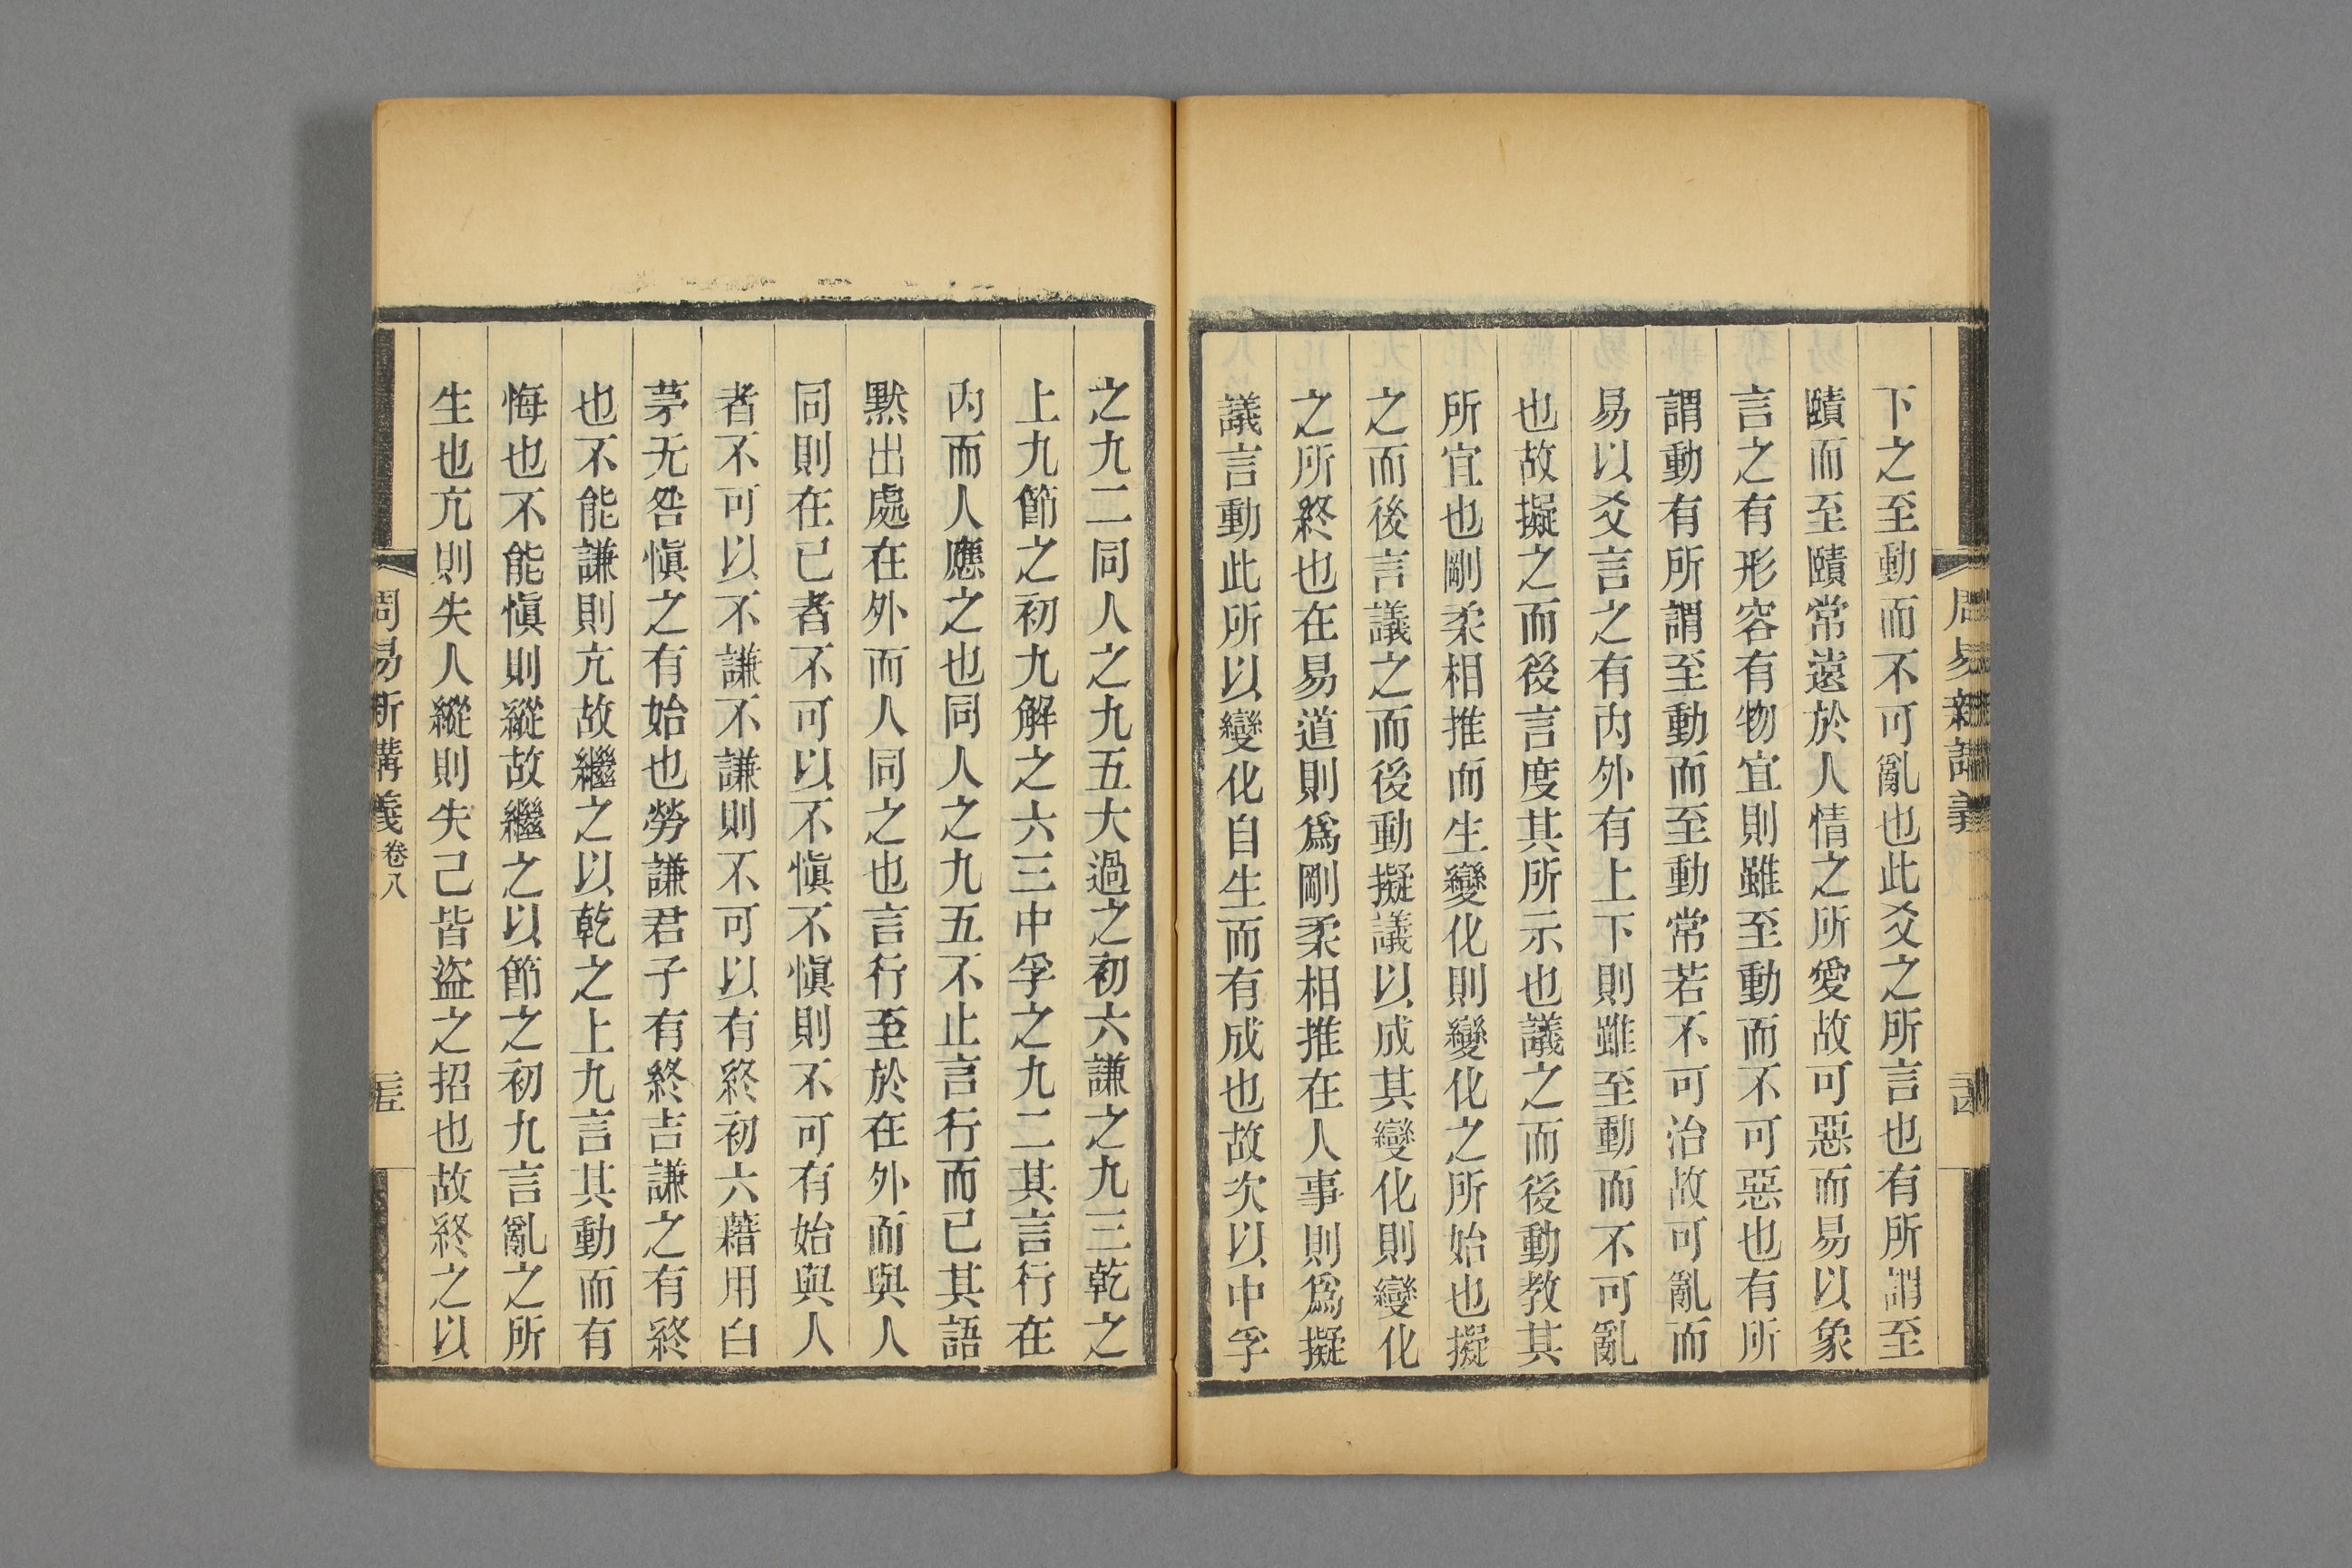 下之至動而不可亂也此爻之所言也有所謂至
賾而至賾常遠於人情之所愛故可惡而易以象
言之有形容有物宜則雖至動而不可惡也有所
謂動有所謂至動而至動常若不可治故可亂而
易以爻言之有內外有上下則雖至動而不可亂
也故擬之而後言度其所示也議之而後動教其
所宜也剛柔相推而生變化則變化之所始也擬
之而後言議之而後動擬議以成其變化則變化
之所終也在易道則爲剛柔相推在人事則爲擬
議言動此所以變化自生而有成也故次以中孚
之九二同人之九五大過之初六謙之九三乾之
上九節之初九解之六三中孚之九二其言行在
內而人應之也同人之九五不止言行而已其語
默出處在外而人同之也言行至於在外而與人
同則在已者不可以不愼不愼則不可有始與人
者不可以不謙不謙則不可以有終初六藉用白
茅无咎愼之有始也勞謙君子有終吉謙之有終
也不能謙則亢故繼之以乾之上九言其動而有
悔也不能愼則縱故繼之以節之初九言亂之所
生也亢則失人縱則失己皆盜之招也故終之以
周易新講義 卷八